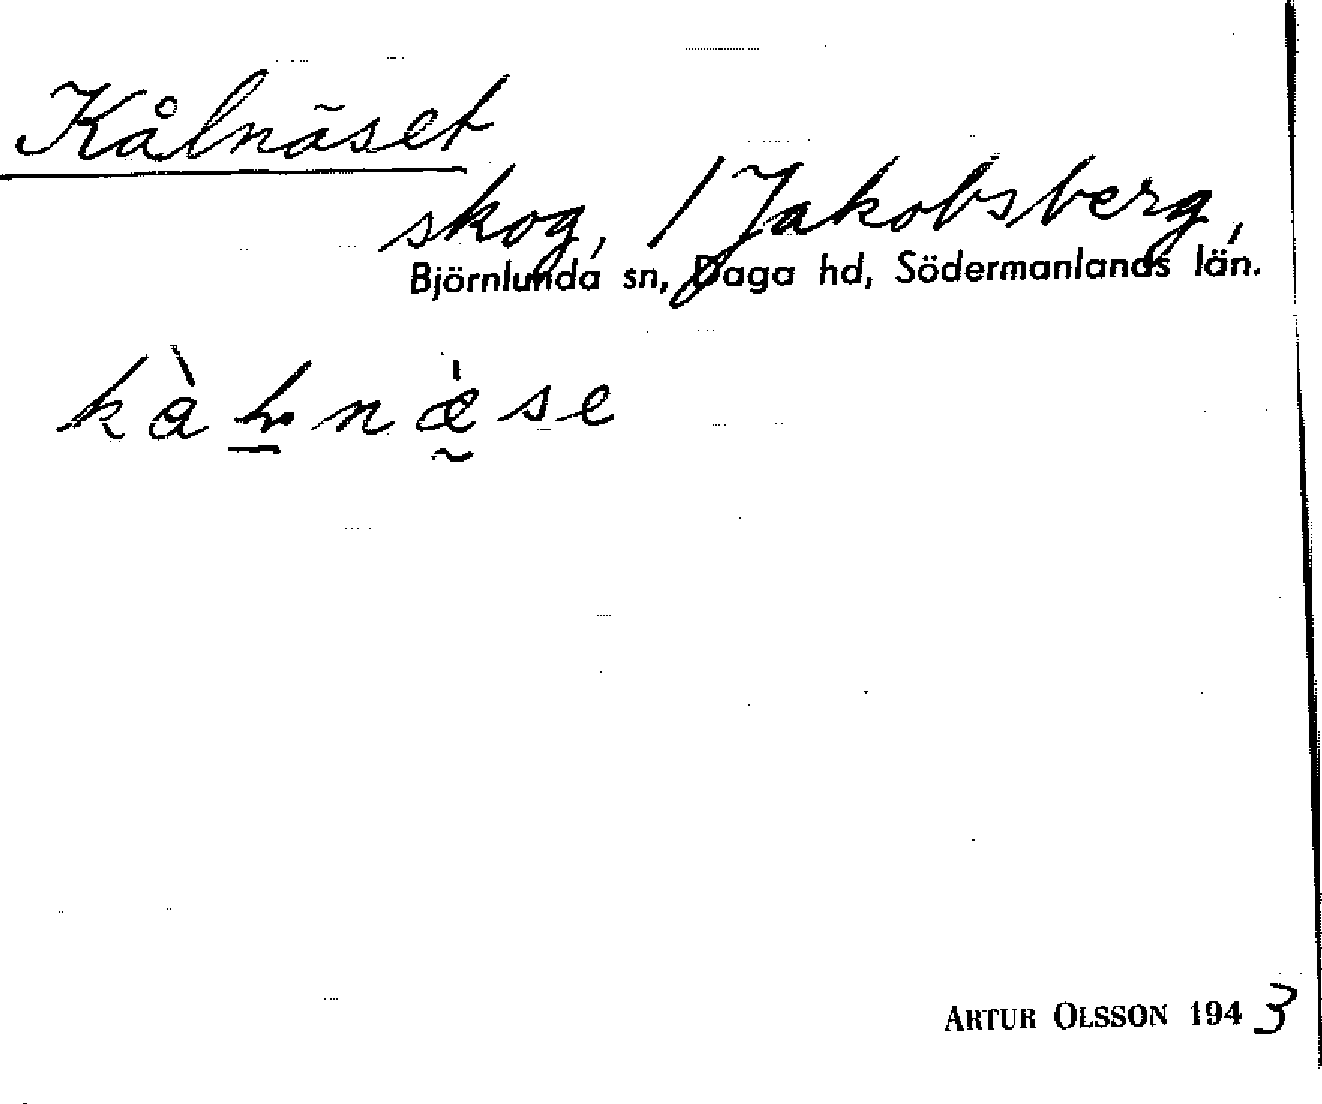 Kålnäset
skog, / Jakobsberg,
Björnlunda sn, Daga hd, Södermanlands län.
ARTUR OLSSON 1943